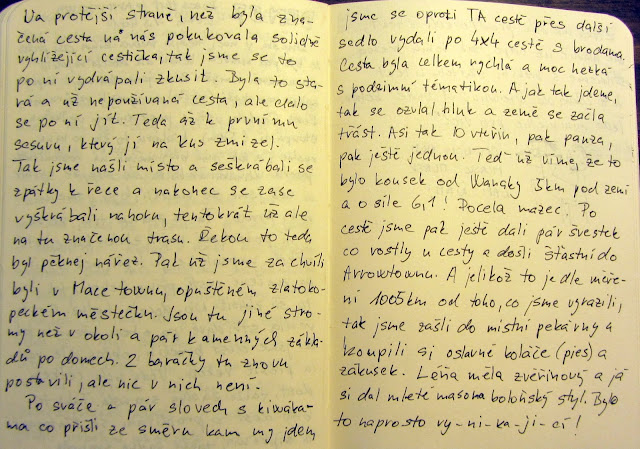 Na protější straně, než byla zna-
čená cesta na nás pokukovala solidně
vyhlížející cestička, tak jsme se to
po ní vydrápali zkusit. Byla to sta-
rá a už nepoužívaná cesta, ale dalo
se po ní jít. Teda až k prvnímu
sesuvu, který jí na kus zmizel.
Tak jsme našli místo a seškrábali se
zpátky k řece a nakonec se zase
vyškrábali nahoru, tentokrát už ale
na tu značenou trasu. Řekou to teda
byl pěknej nářez. Pak už jsme za chvíli
byli v Mace townu, opuštěném zlatoko-
peckém městečku. Jsou tu jiné stro-
my než v okolí a pár kamenných zákla-
dů po domech. 2 baráčky tu znovu
postavili, ale nic v nich není.
Po sváče a pár slovech s kiwáka-
ma co přišli ze směru kam my jdem,
jsme se oproti TA cestě přes další
sedlo vydali po 4x4 cestě s brodama.
Cesta byla celkem rychlá a moc hezká
s podzimní tématikou. A jak tak jdeme,
tak se ozval hluk a země se začla
třást. Asi tak 10 vteřin, pak pauza,
pak ještě jednou. Teď už víme, že to
bylo kousek od Wanaky 5km pod zemí
a o síle 6,1! Docela mazec. Po
cestě jsme pak ještě dali pár švestek
co rostly u cesty a došli šťastní do
Arrowtownu. A jelikož to je dle měře-
ní 1005km od toho, co jsme vyrazili,
tak jsme zašli do místní pekárny a
koupili si oslavné koláče (pies) a
zákusek. Léňa měla zvěřinový a já
si dal mleté maso na boloňský styl. Bylo
to naprosto vy-ni-ka-jí-cí!